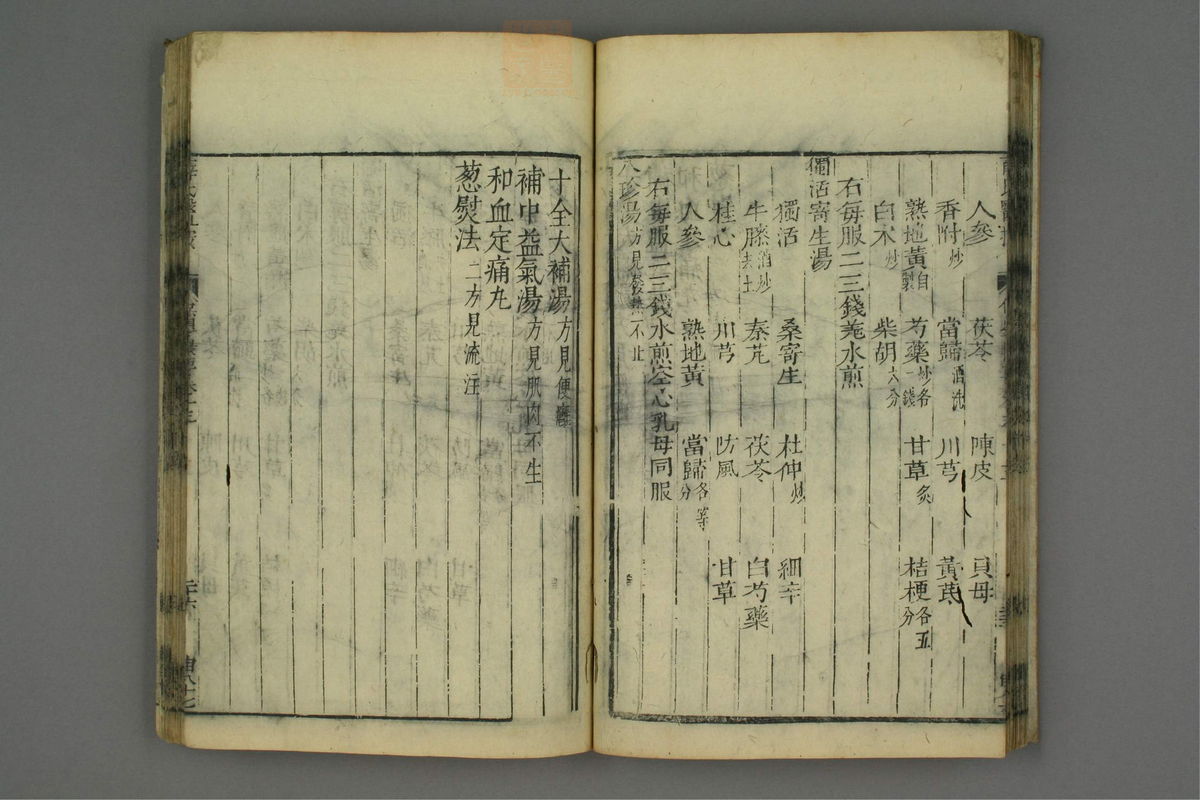 人參 茯苓 陳皮 貝母
香附炒 當歸酒洗 川芎 黃芪
熟地黃自製 芍藥炒各一錢 甘草炙 桔梗各五分
白朮炒 柴胡六分
右每服二三錢羗水煎
獨活寄生湯
獨活 桑寄生 杜仲炒 細辛
牛膝酒炒去土 秦艽 茯苓 白芍藥
桂心 川芎 防風 甘草
人參 熟地黃 當歸各等分
右每服二三錢水煎空心乳母同服
八珍湯方見發熱不止
十全大補湯方見便癰
補中益氣湯方見肌肉不生
和血定痛丸
葱熨法二方見流注